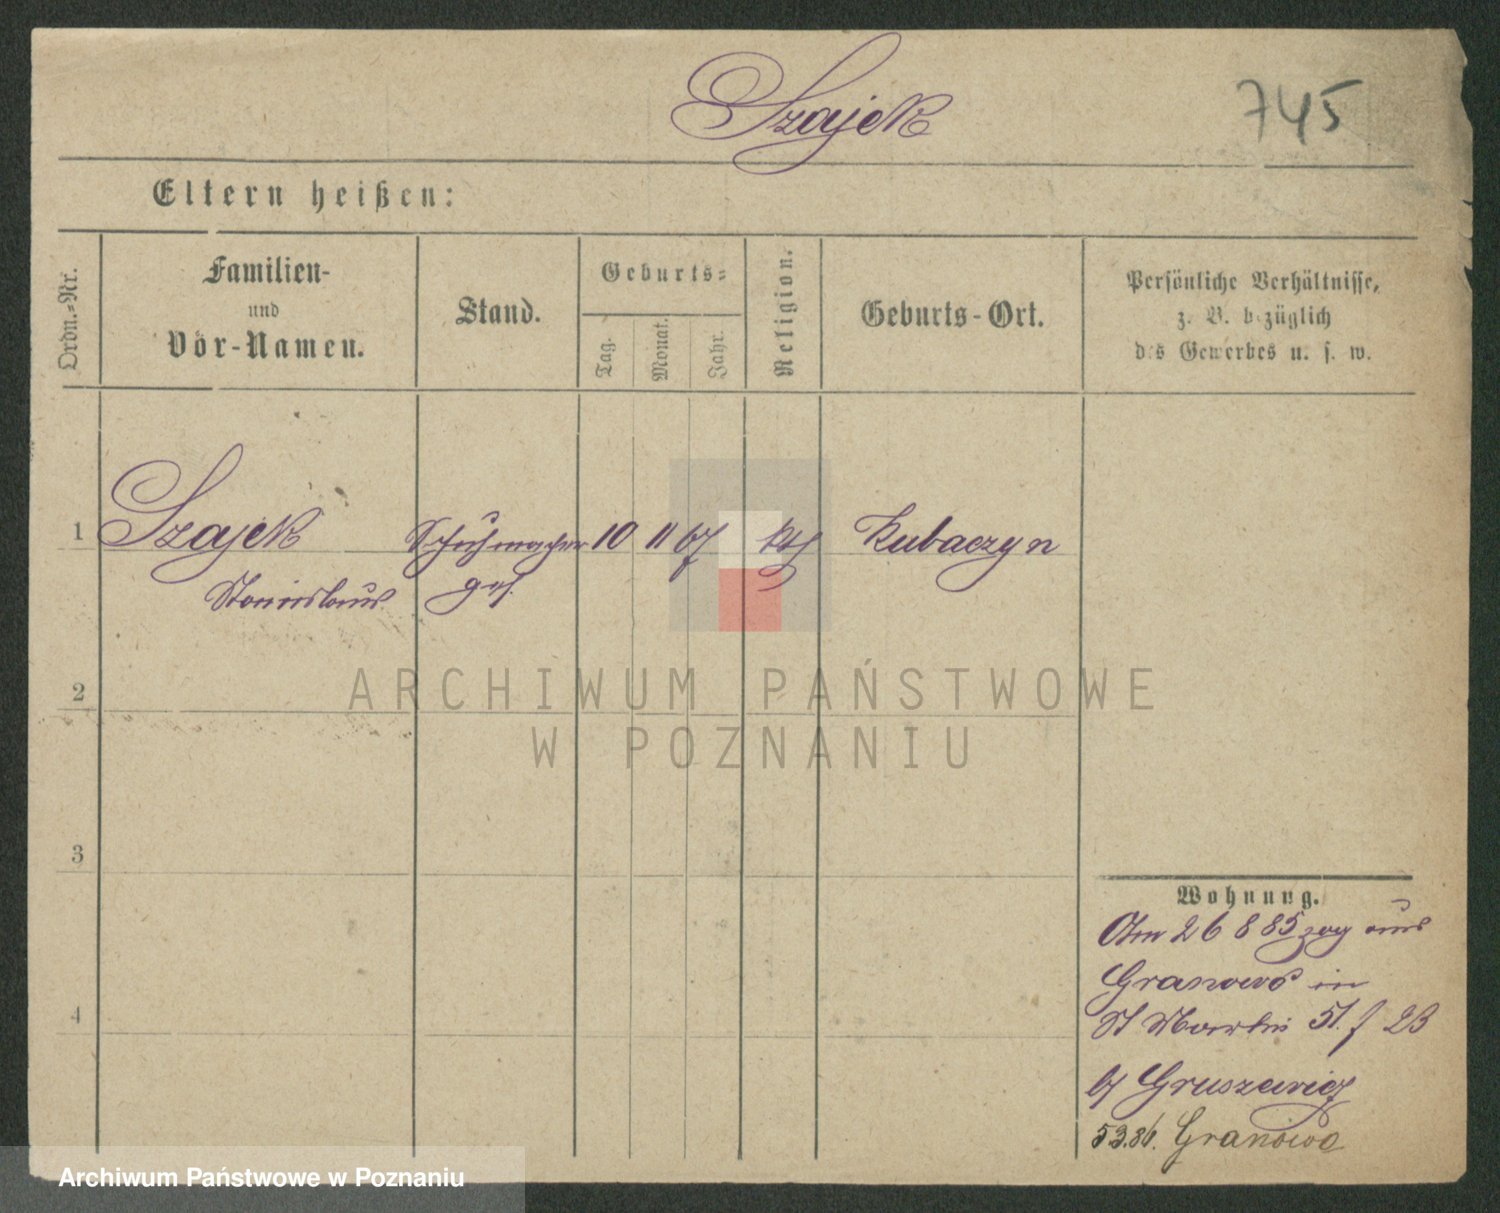 Szajek
745
Eltern heißen:
Ordn.-Nr.
Familien-
und
Vor-Namen.
Stand.
Geburts-
Tag.
Monat.
Jahr.
Religion.
Geburts-Ort.
Persönliche Verhältnisse,
z. B. bezüglich
des Gewerbes u. s. w.
1 Szajek Schuhmacher 10 11 67 kth Kubaczyn
Stanislaus ges.
2
3
4
Wohnung.
Am 26 8 85 zog aus
Granowo in
St Martin 51. f 23
b/ Gruszewicz
5 3. 86. Granowo
ARCHIWUM PAŃSTWOWE
W POZNANIU
Archiwum Państwowe w Poznaniu